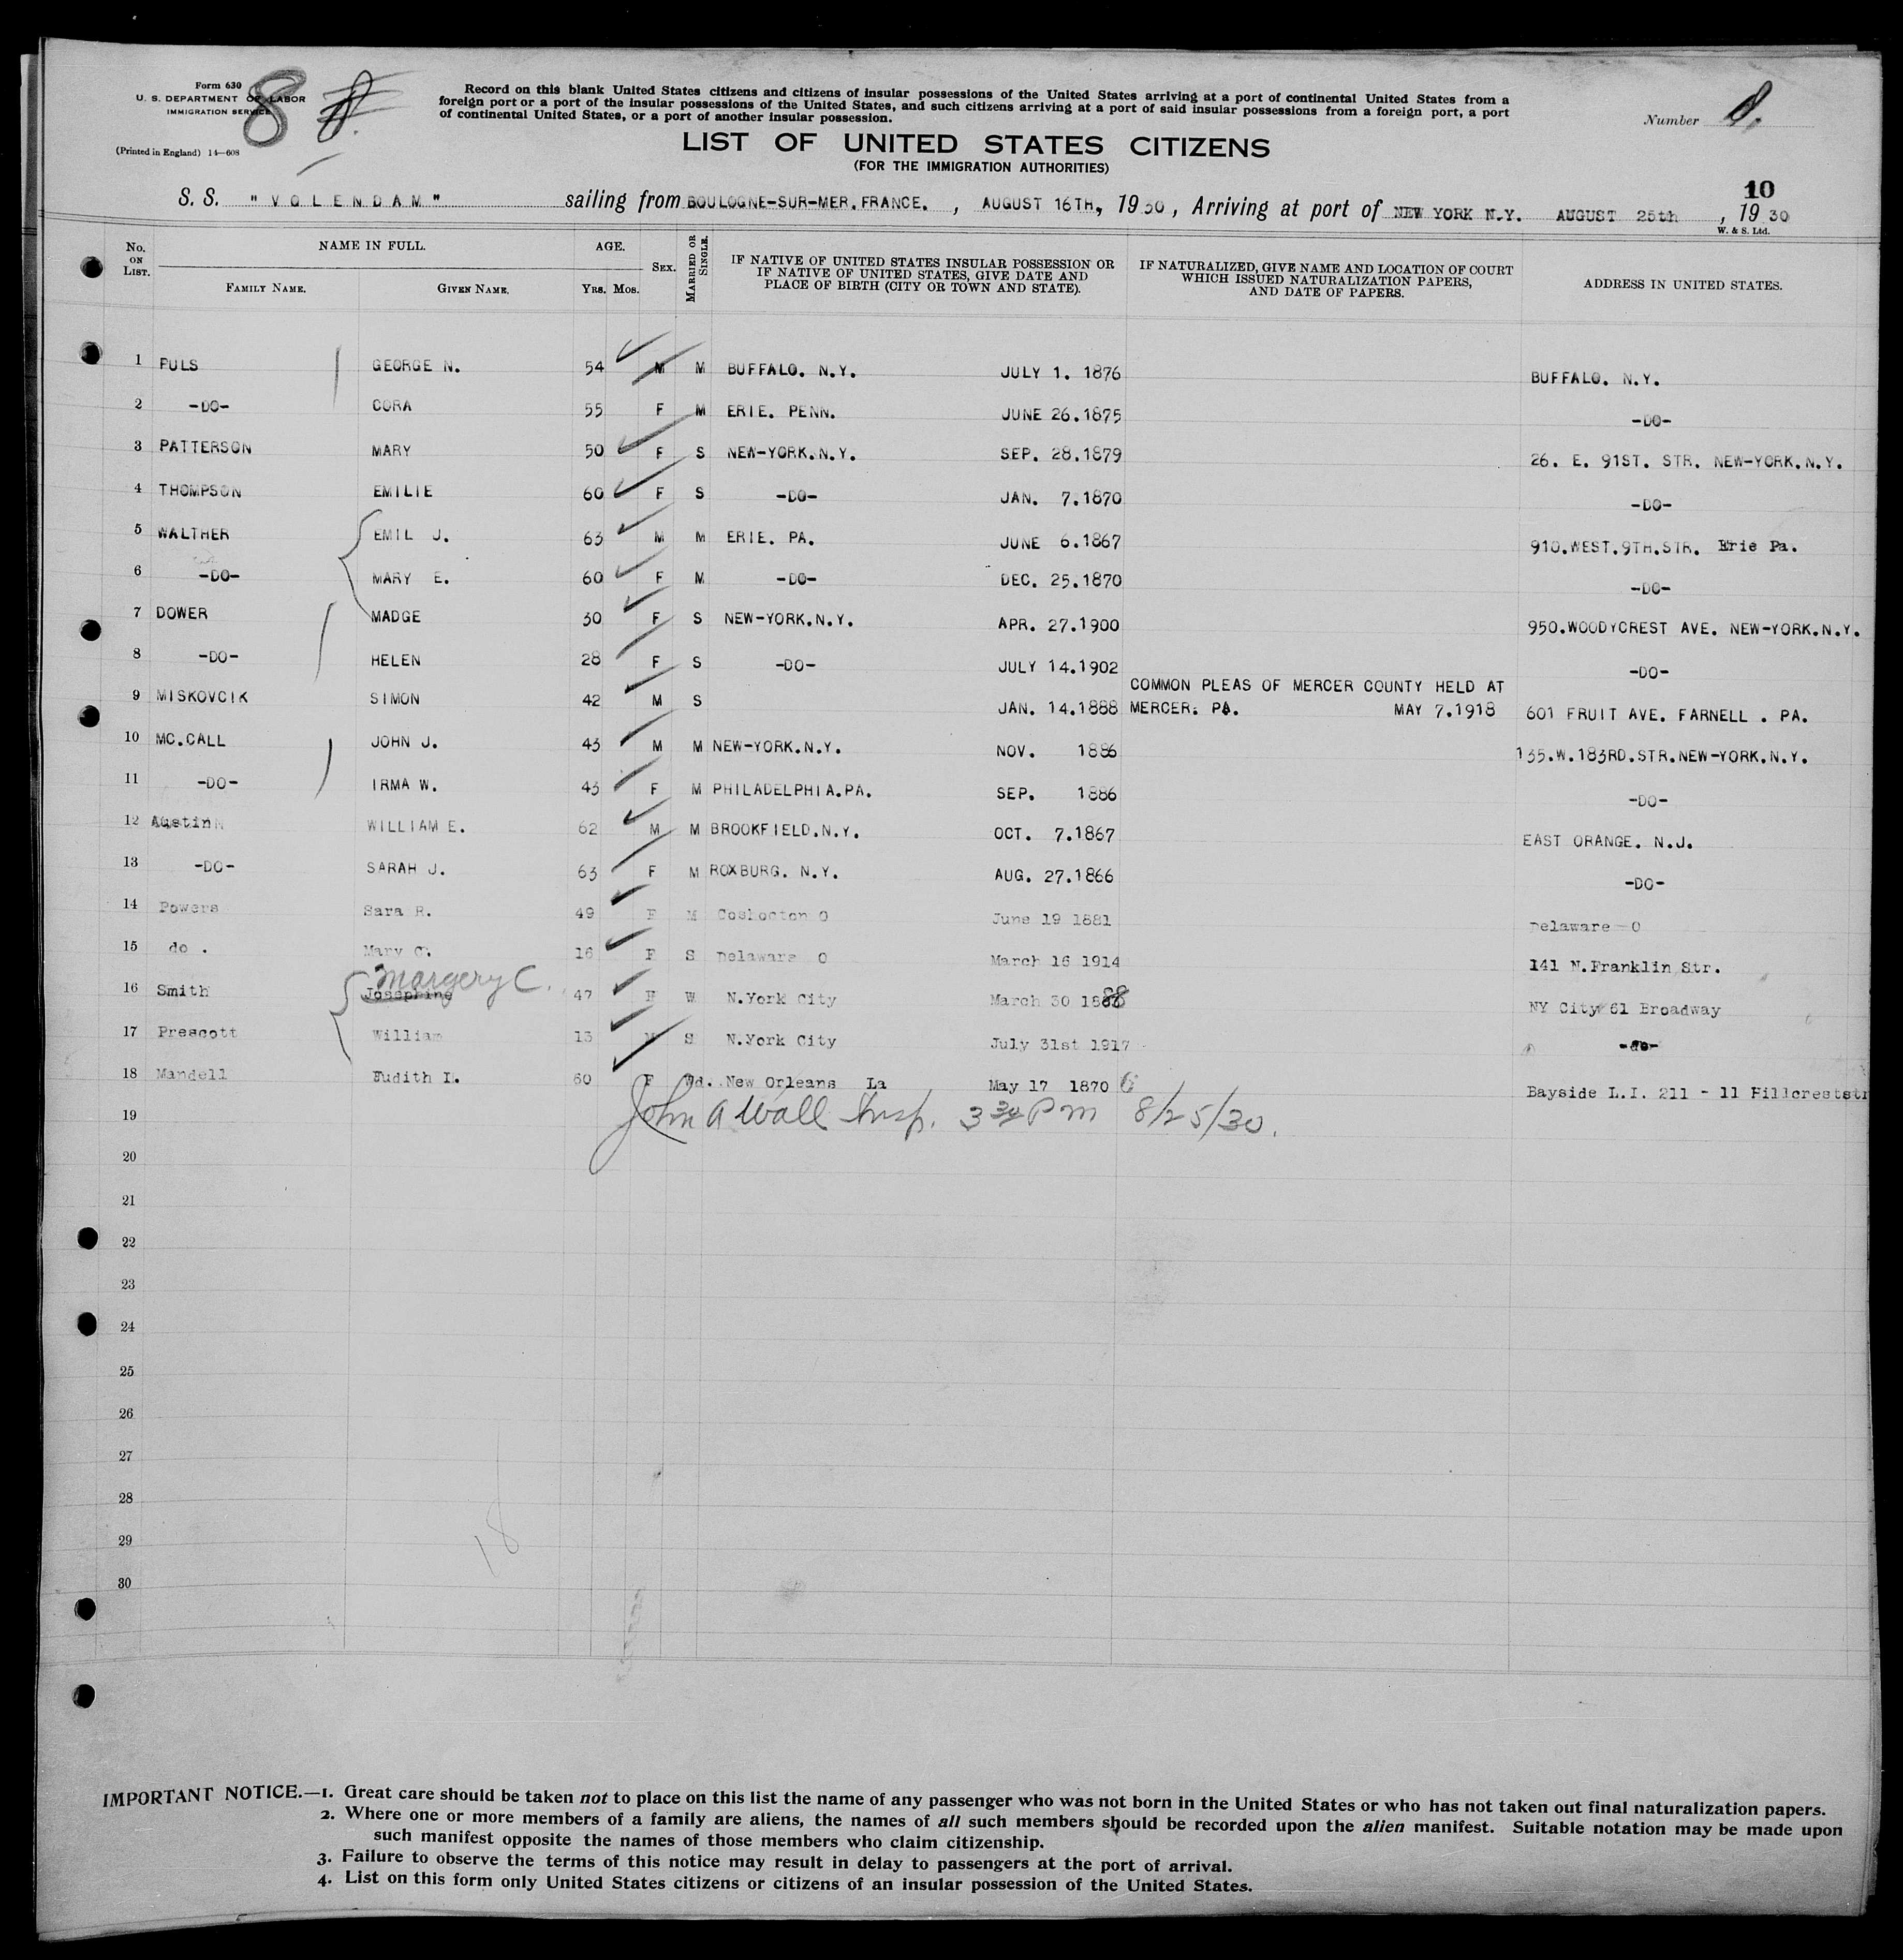 Form 630
U. S. DEPARTMENT OF LABOR
IMMIGRATION SERVICE
(Printed in England) 14—608
8
Record on this blank United States citizens and citizens of insular possessions of the United States arriving at a port of continental United States from a
foreign port or a port of the insular possessions of the United States, and such citizens arriving at a port of said insular possessions from a foreign port, a port
of continental United States, or a port of another insular possession.
Number
LIST OF UNITED STATES CITIZENS
(FOR THE IMMIGRATION AUTHORITIES)
10
S. S. "VOLENDAM" sailing from BOULOGNE-SUR-MER.FRANCE. , AUGUST 16TH, 1930, Arriving at port of NEW YORK N.Y. AUGUST 25th , 1930
W. & S. Ltd.
No. ON LIST. NAME IN FULL. FAMILY NAME. GIVEN NAME. AGE. YRS. MOS. SEX. MARRIED OR SINGLE. IF NATIVE OF UNITED STATES INSULAR POSSESSION OR IF NATIVE OF UNITED STATES, GIVE DATE AND PLACE OF BIRTH (CITY OR TOWN AND STATE). IF NATURALIZED, GIVE NAME AND LOCATION OF COURT WHICH ISSUED NATURALIZATION PAPERS, AND DATE OF PAPERS. ADDRESS IN UNITED STATES.
1 PULS GEORGE N. 54 M M BUFFALO. N.Y. JULY 1. 1876 BUFFALO. N.Y.
2 -DO- CORA 55 F M ERIE. PENN. JUNE 26.1875 -DO-
3 PATTERSON MARY 50 F S NEW-YORK.N.Y. SEP. 28.1879 26. E. 91ST. STR. NEW-YORK.N.Y.
4 THOMPSON EMILIE 60 F S -DO- JAN. 7.1870 -DO-
5 WALTHER EMIL J. 63 M M ERIE. PA. JUNE 6.1867 910.WEST.9TH.STR. Erie Pa.
6 -DO- MARY E. 60 F M -DO- DEC. 25.1870 -DO-
7 DOWER MADGE 30 F S NEW-YORK.N.Y. APR. 27.1900 950.WOODYCREST AVE. NEW-YORK.N.Y.
8 -DO- HELEN 28 F S -DO- JULY 14.1902 -DO-
9 MISKOVCIK SIMON 42 M S JAN. 14.1888 COMMON PLEAS OF MERCER COUNTY HELD AT MERCER. PA. MAY 7.1918 601 FRUIT AVE. FARNELL . PA.
10 MC.CALL JOHN J. 43 M M NEW-YORK.N.Y. NOV. 1886 135.W.183RD.STR.NEW-YORK.N.Y.
11 -DO- IRMA W. 43 F M PHILADELPHIA.PA. SEP. 1886 -DO-
12 Austin WILLIAM E. 62 M M BROOKFIELD.N.Y. OCT. 7.1867 EAST ORANGE. N.J.
13 -DO- SARAH J. 63 F M ROXBURG. N.Y. AUG. 27.1866 -DO-
14 Powers Sara R. 49 F M Coshocton O June 19 1881 Delaware O
15 do . Mary C. 16 F S Delaware O March 16 1914 141 N.Franklin Str.
Margery C.
16 Smith Josephine 47 F W N.York City March 30 1888 NY City 61 Broadway
17 Prescott William 13 M S N.York City July 31st 1917 -do-
18 Mandell Judith I. 60 F Wd. New Orleans La May 17 1870 6 Bayside L.I. 211 - 11 Hillcreststr
19 John A Wall Insp. 3 30 Pm 8/25/30.
20
21
22
23
24
25
26
27
28
29
18
30
IMPORTANT NOTICE.—1. Great care should be taken not to place on this list the name of any passenger who was not born in the United States or who has not taken out final naturalization papers.
2. Where one or more members of a family are aliens, the names of all such members should be recorded upon the alien manifest. Suitable notation may be made upon
such manifest opposite the names of those members who claim citizenship.
3. Failure to observe the terms of this notice may result in delay to passengers at the port of arrival.
4. List on this form only United States citizens or citizens of an insular possession of the United States.